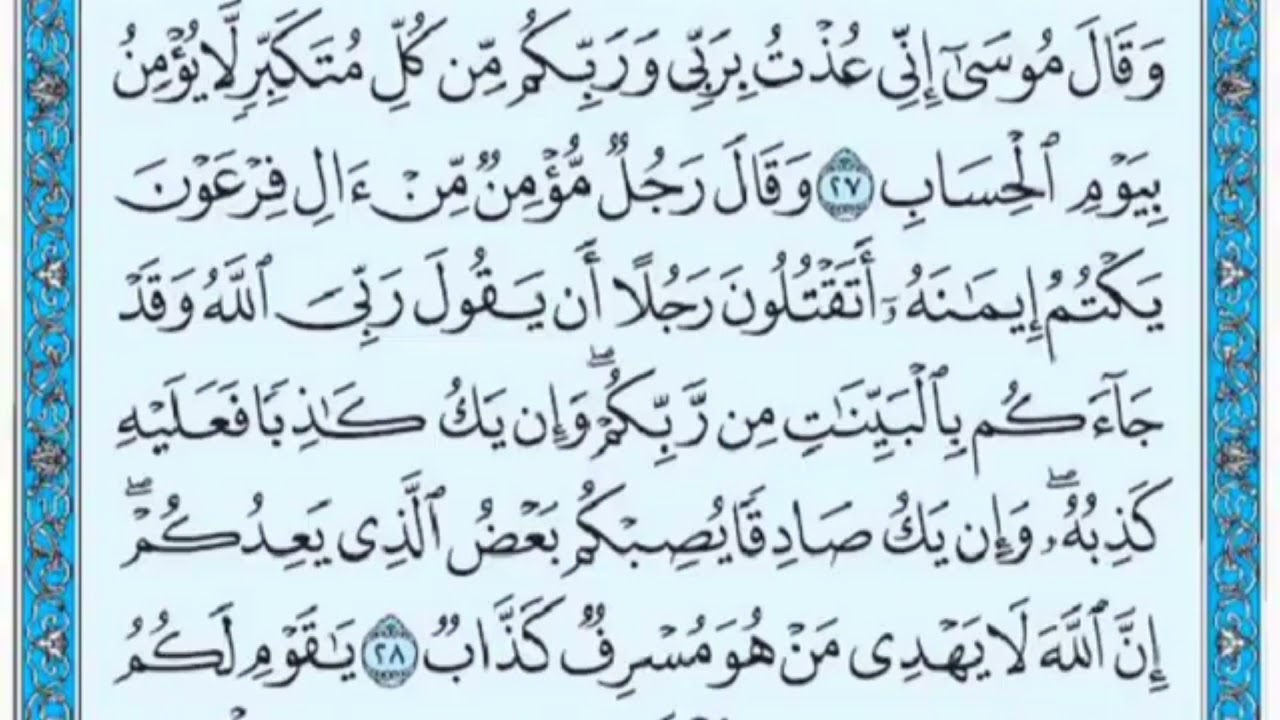 وَقَالَ مُوسَىٰٓ إِنِّي عُذْتُ بِرَبِّي وَرَبِّكُم مِّن كُلِّ مُتَكَبِّرٍ لَّا يُؤْمِنُ
بِيَوْمِ ٱلْحِسَابِ ٢٧ وَقَالَ رَجُلٌ مُّؤْمِنٌ مِّنْ ءَالِ فِرْعَوْنَ
يَكْتُمُ إِيمَـٰنَهُۥٓ أَتَقْتُلُونَ رَجُلًا أَن يَقُولَ رَبِّىَ ٱللَّهُ وَقَدْ
جَآءَكُم بِٱلْبَيِّنَـٰتِ مِن رَّبِّكُمْ ۖ وَإِن يَكُ كَـٰذِبًا فَعَلَيْهِ
كَذِبُهُۥ ۖ وَإِن يَكُ صَادِقًا يُصِبْكُم بَعْضُ ٱلَّذِى يَعِدُكُمْ ۖ
إِنَّ ٱللَّهَ لَا يَهْدِى مَنْ هُوَ مُسْرِفٌ كَذَّابٌ ٢٨ يَـٰقَوْمِ لَكُمُ